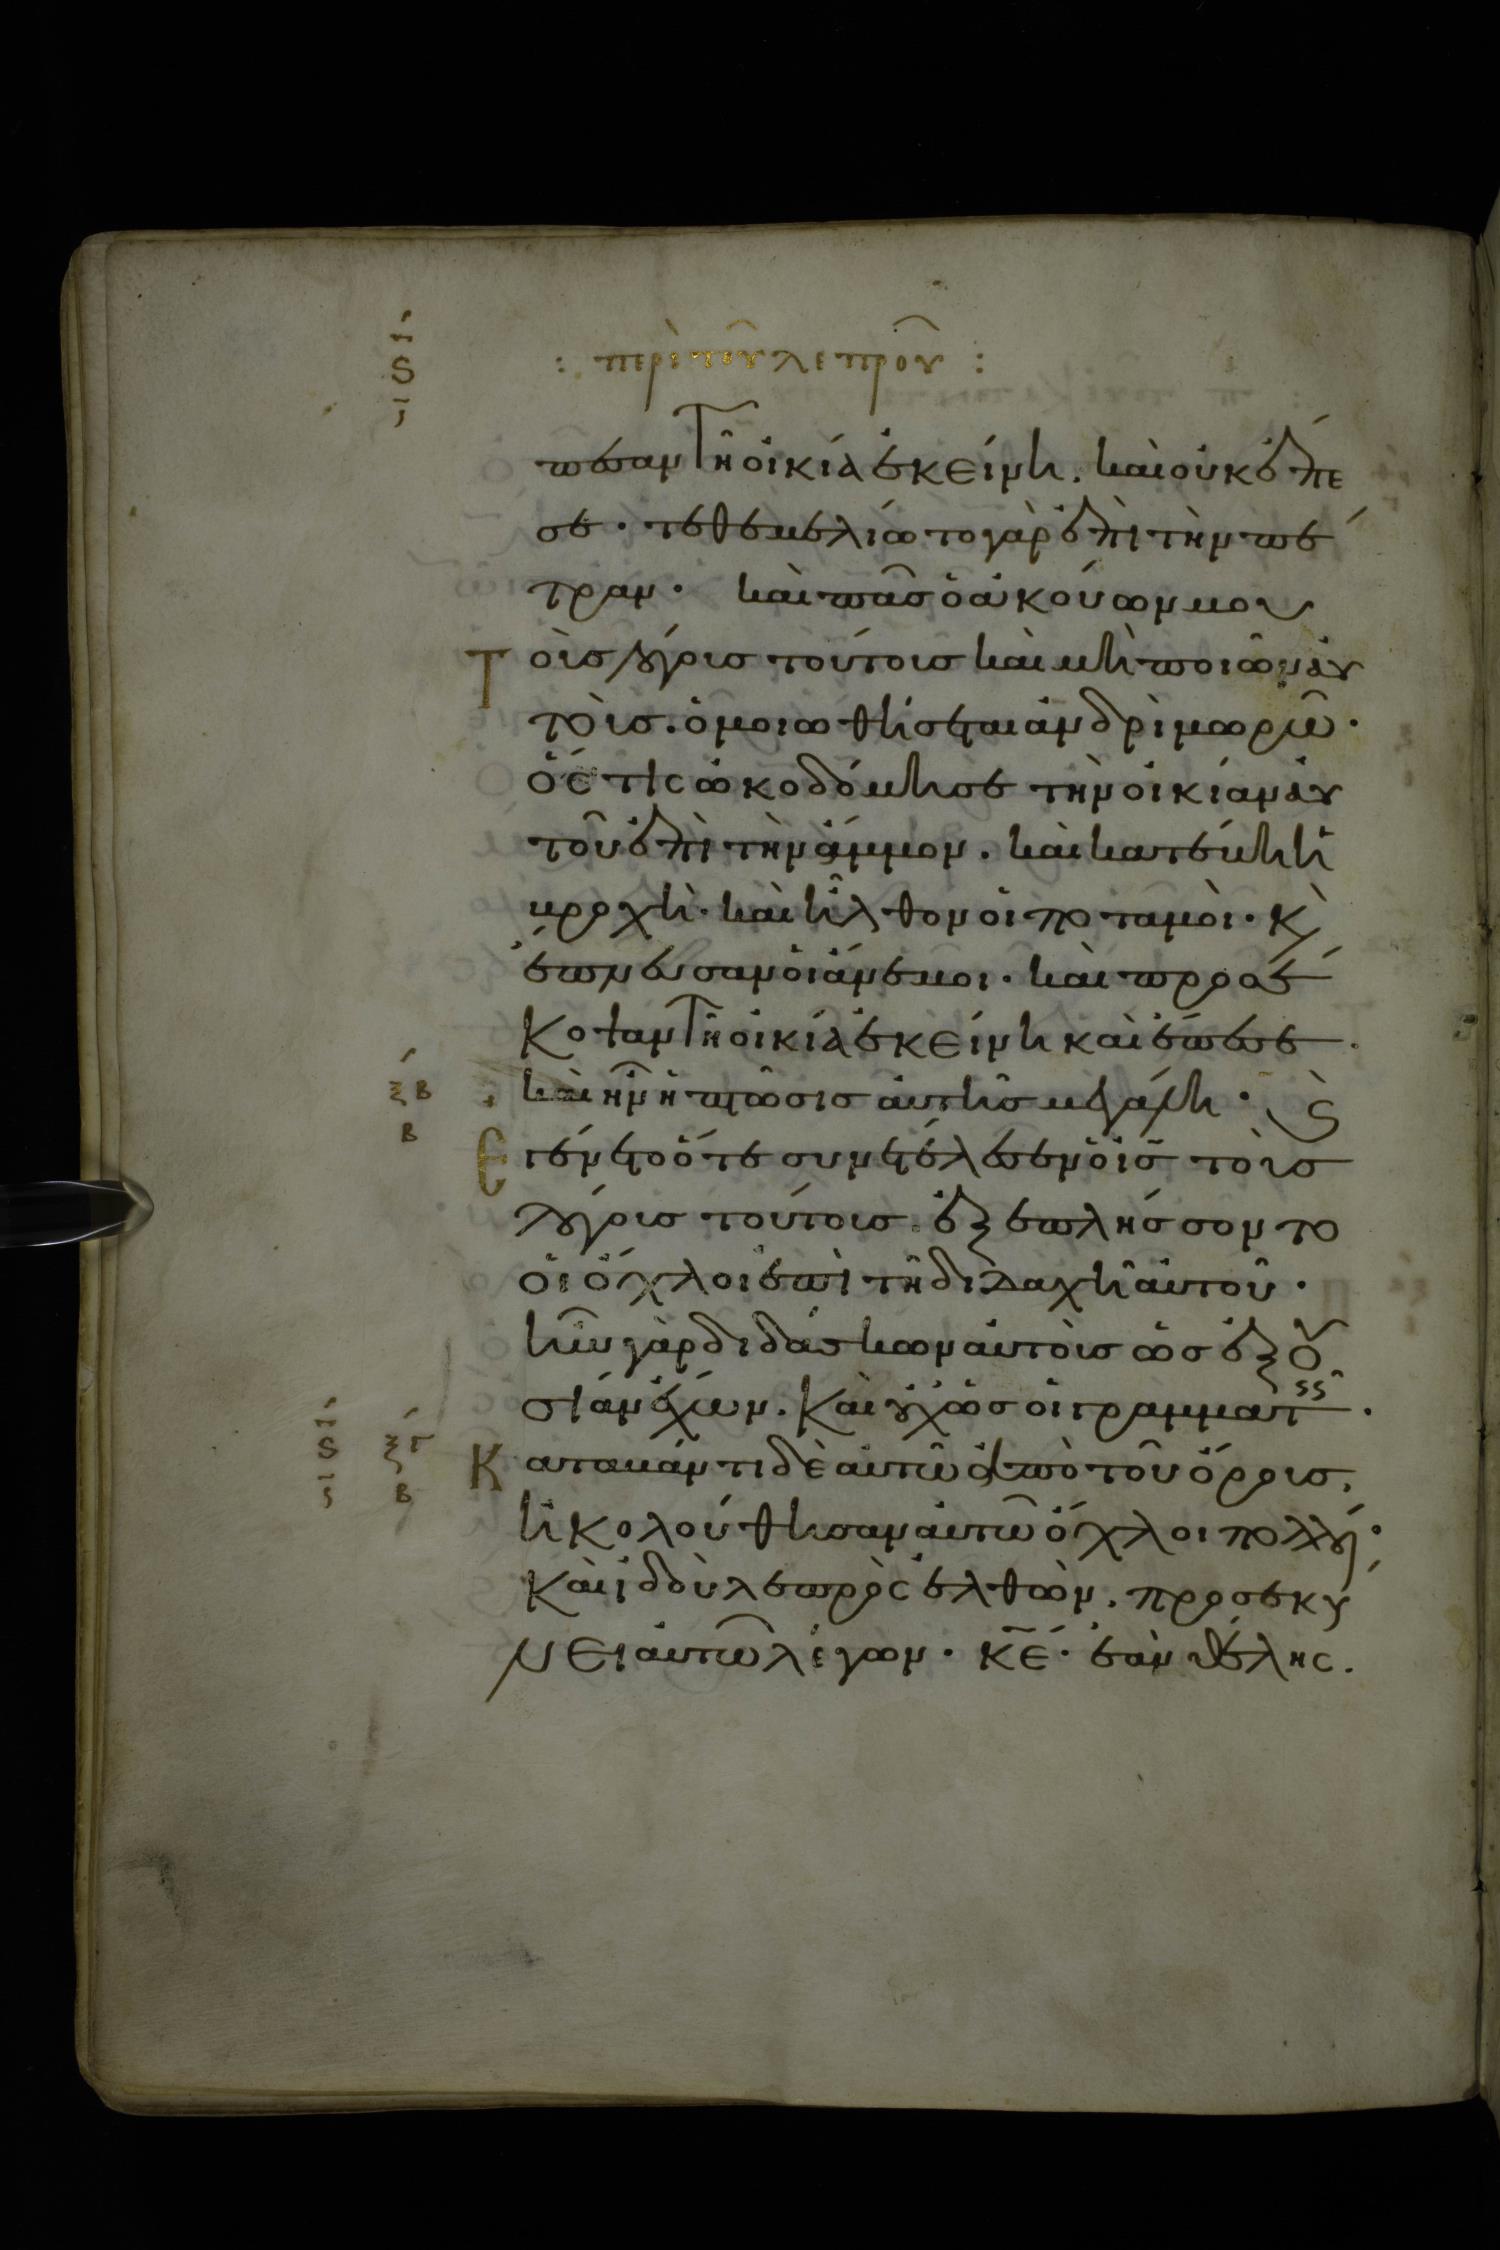 : περὶ τοῦ λεπροῦ :
ις
ς
πεσαν τῆ οἰκία ἐκείνη. καὶ οὐκ ἔπε
σε · τεθεμελίωτο γὰρ ἐπὶ τὴν πέ
τραν · καὶ πᾶσ ὁ ἀκούων μου
τοὺσ λόγουσ τούτουσ καὶ μὴ ποιῶν ἀυ
τοὺσ. ὁμοιωθήσεται ἀνδρὶ μωρῶ ·
ὅστις ὠκοδόμησε τὴν οἰκίαν ἀυ
τοῦ ἐπὶ τὴν ἄμμον. καὶ κατέβη ἡ
βροχὴ · καὶ ἦλθον οἱ ποταμοὶ · κ
ἔπνευσαν οἱ ἄνεμοι · καὶ προσέ
κοψαν τῆ οἰκία ἐκείνη καὶ ἔπεσε ·
ξβ
β
καὶ ἦν ἡ πτῶσισ ἀυτῆσ μεγάλη · κ
Εγένετο ὅτε συνετέλεσεν ὁ ισ τοὺσ
λόγουσ τούτουσ. ἐξεπλήσσοντο
οἱ ὄχλοι ἐπὶ τῆ διδαχῆ ἀυτοῦ ·
ἦν γὰρ διδάσκων ἀυτοὺσ ὡσ ἐξου
σίαν ἔχων. καὶ οὐχ ὡσ οἱ γραμματ ·
ις
ς
ξγ
β
Καταβάντι δὲ ἀυτῶ ἀπὸ τοῦ ὄρουσ.
ἠκολούθησαν ἀυτῶ ὄχλοι πολλοί ·
καὶ ἰδοὺ λεπρὸς ἐλθὼν. προσεκύ
νει ἀυτῶ λέγων · κε · ἐὰν θέλης.